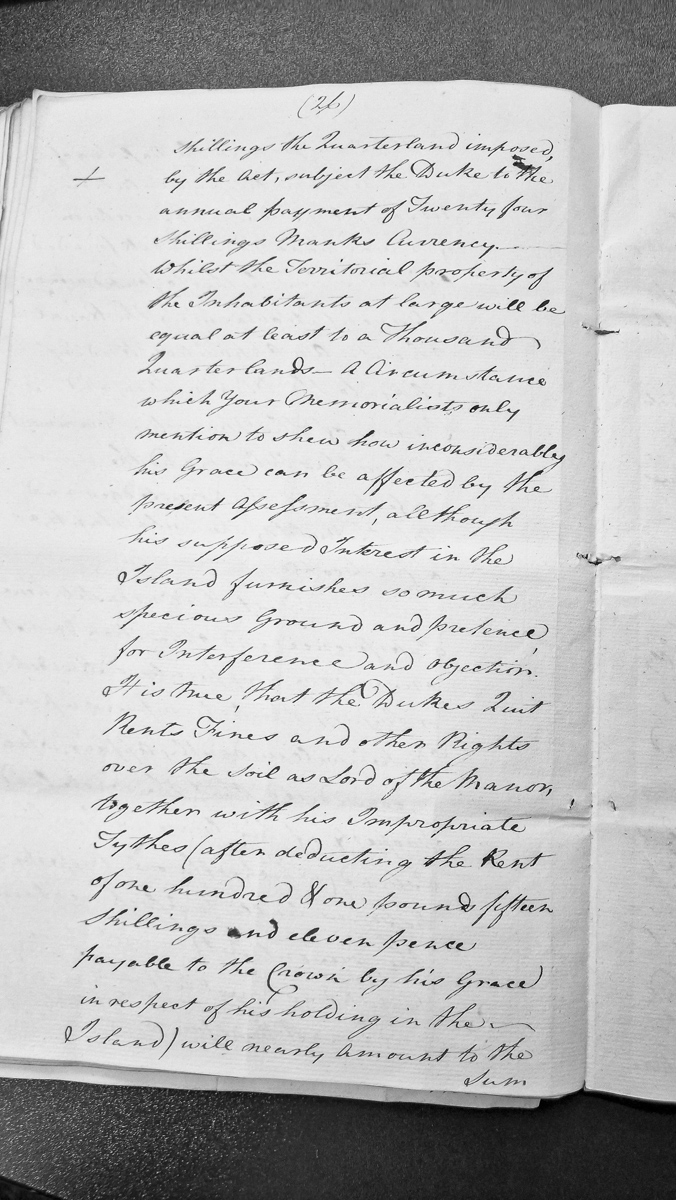 (26)
shillings the Quarterland imposed,
+ by the Act, subject the Duke to the
annual payment of Twenty four
Shillings Manks Currency
Whilst the Territorial property of
the Inhabitants at large will be
equal at least to a Thousand
Quarterlands – A Circumstance
which Your Memorialists only
mention to shew how inconsiderably
his Grace can be affected by the
present Assessment, although
his supposed Interest in the
Island furnishes so much
specious Ground and pretence,
for Interference and objection.
It is true, that the Dukes Quit
Rents Fines and other Rights
over the Soil as Lord of the Manor,
together with his Impropriate
Tythes (after deducting the Rent
of one hundred & one pounds fifteen
Shillings and eleven pence
payable to the Crown by his Grace
in respect of his holding in the
Island) will nearly Amount to the
Sum